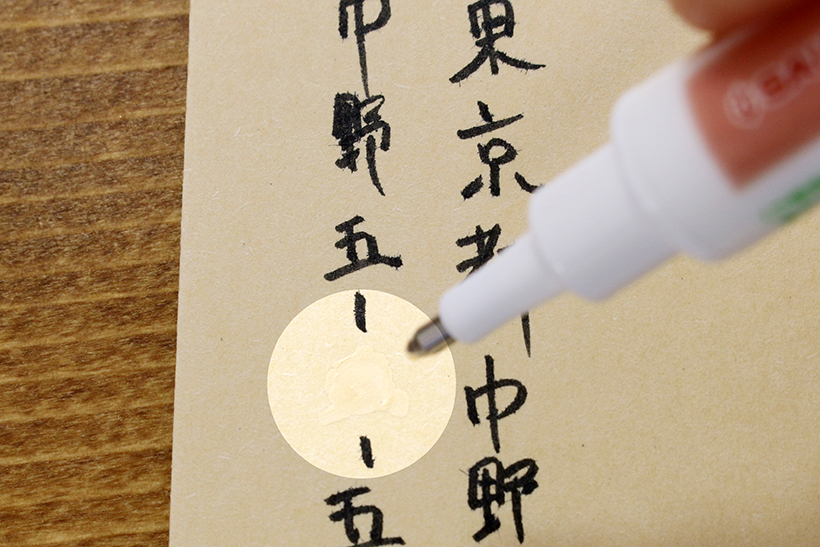 東京都中野
中野五ー ー五